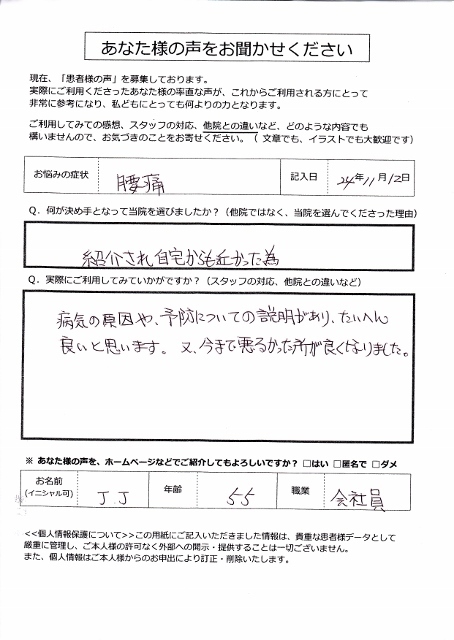 あなた様の声をお聞かせください
現在、「患者様の声」を募集しております。
実際にご利用くださったあなた様の率直な声が、これからご利用される方にとって
非常に参考になり、私どもにとっても何よりの力となります。
ご利用してみての感想、スタッフの対応、他院との違いなど、どのような内容でも
構いませんので、お気づきのことをお寄せください。（ 文章でも、イラストでも大歓迎です）
お悩みの症状 腰痛 記入日 24年11月12日
Q．何が決め手となって当院を選びましたか？（他院ではなく、当院を選んでくださった理由）
紹介され自宅からも近かった為
Q．実際にご利用してみていかがですか？（スタッフの対応、他院との違いなど）
病気の原因や、予防についての説明があり、たいへん
良いと思います。又、今まで悪るかった所が良くなりました。
※ あなた様の声を、ホームページなどでご紹介してもよろしいですか？ □はい □匿名で □ダメ
お名前
(イニシャル可) J.J 年齢 55 職業 会社員
<<個人情報保護について>>この用紙にご記入いただきました情報は、貴重な患者様データとして
厳重に管理し、ご本人様の許可なく外部への開示・提供することは一切ございません。
また、個人情報はご本人様からのお申出により訂正・削除いたします。